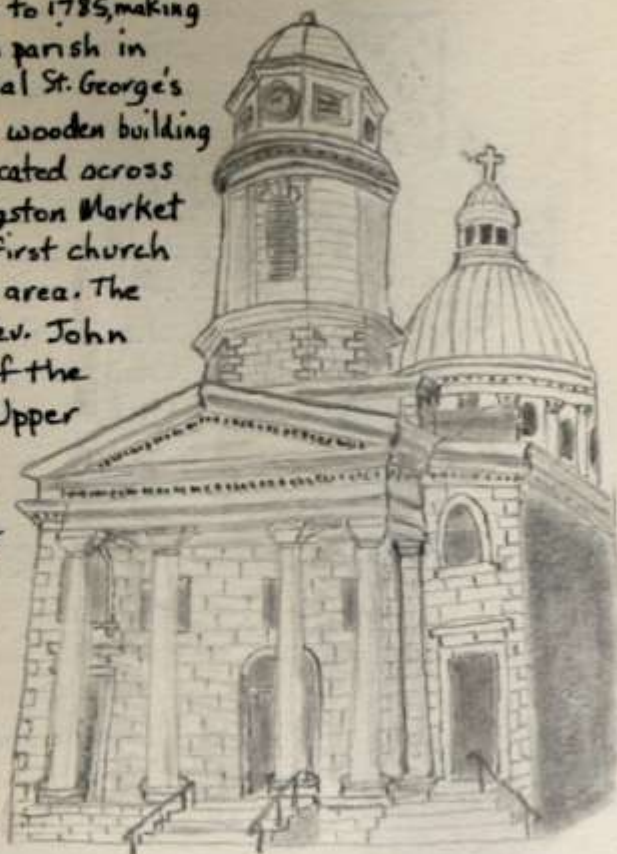 to 1785, making
parish in
al St. George's
wooden building
cated across
gston Market
first church
area. The
ev. John
f the
Upper